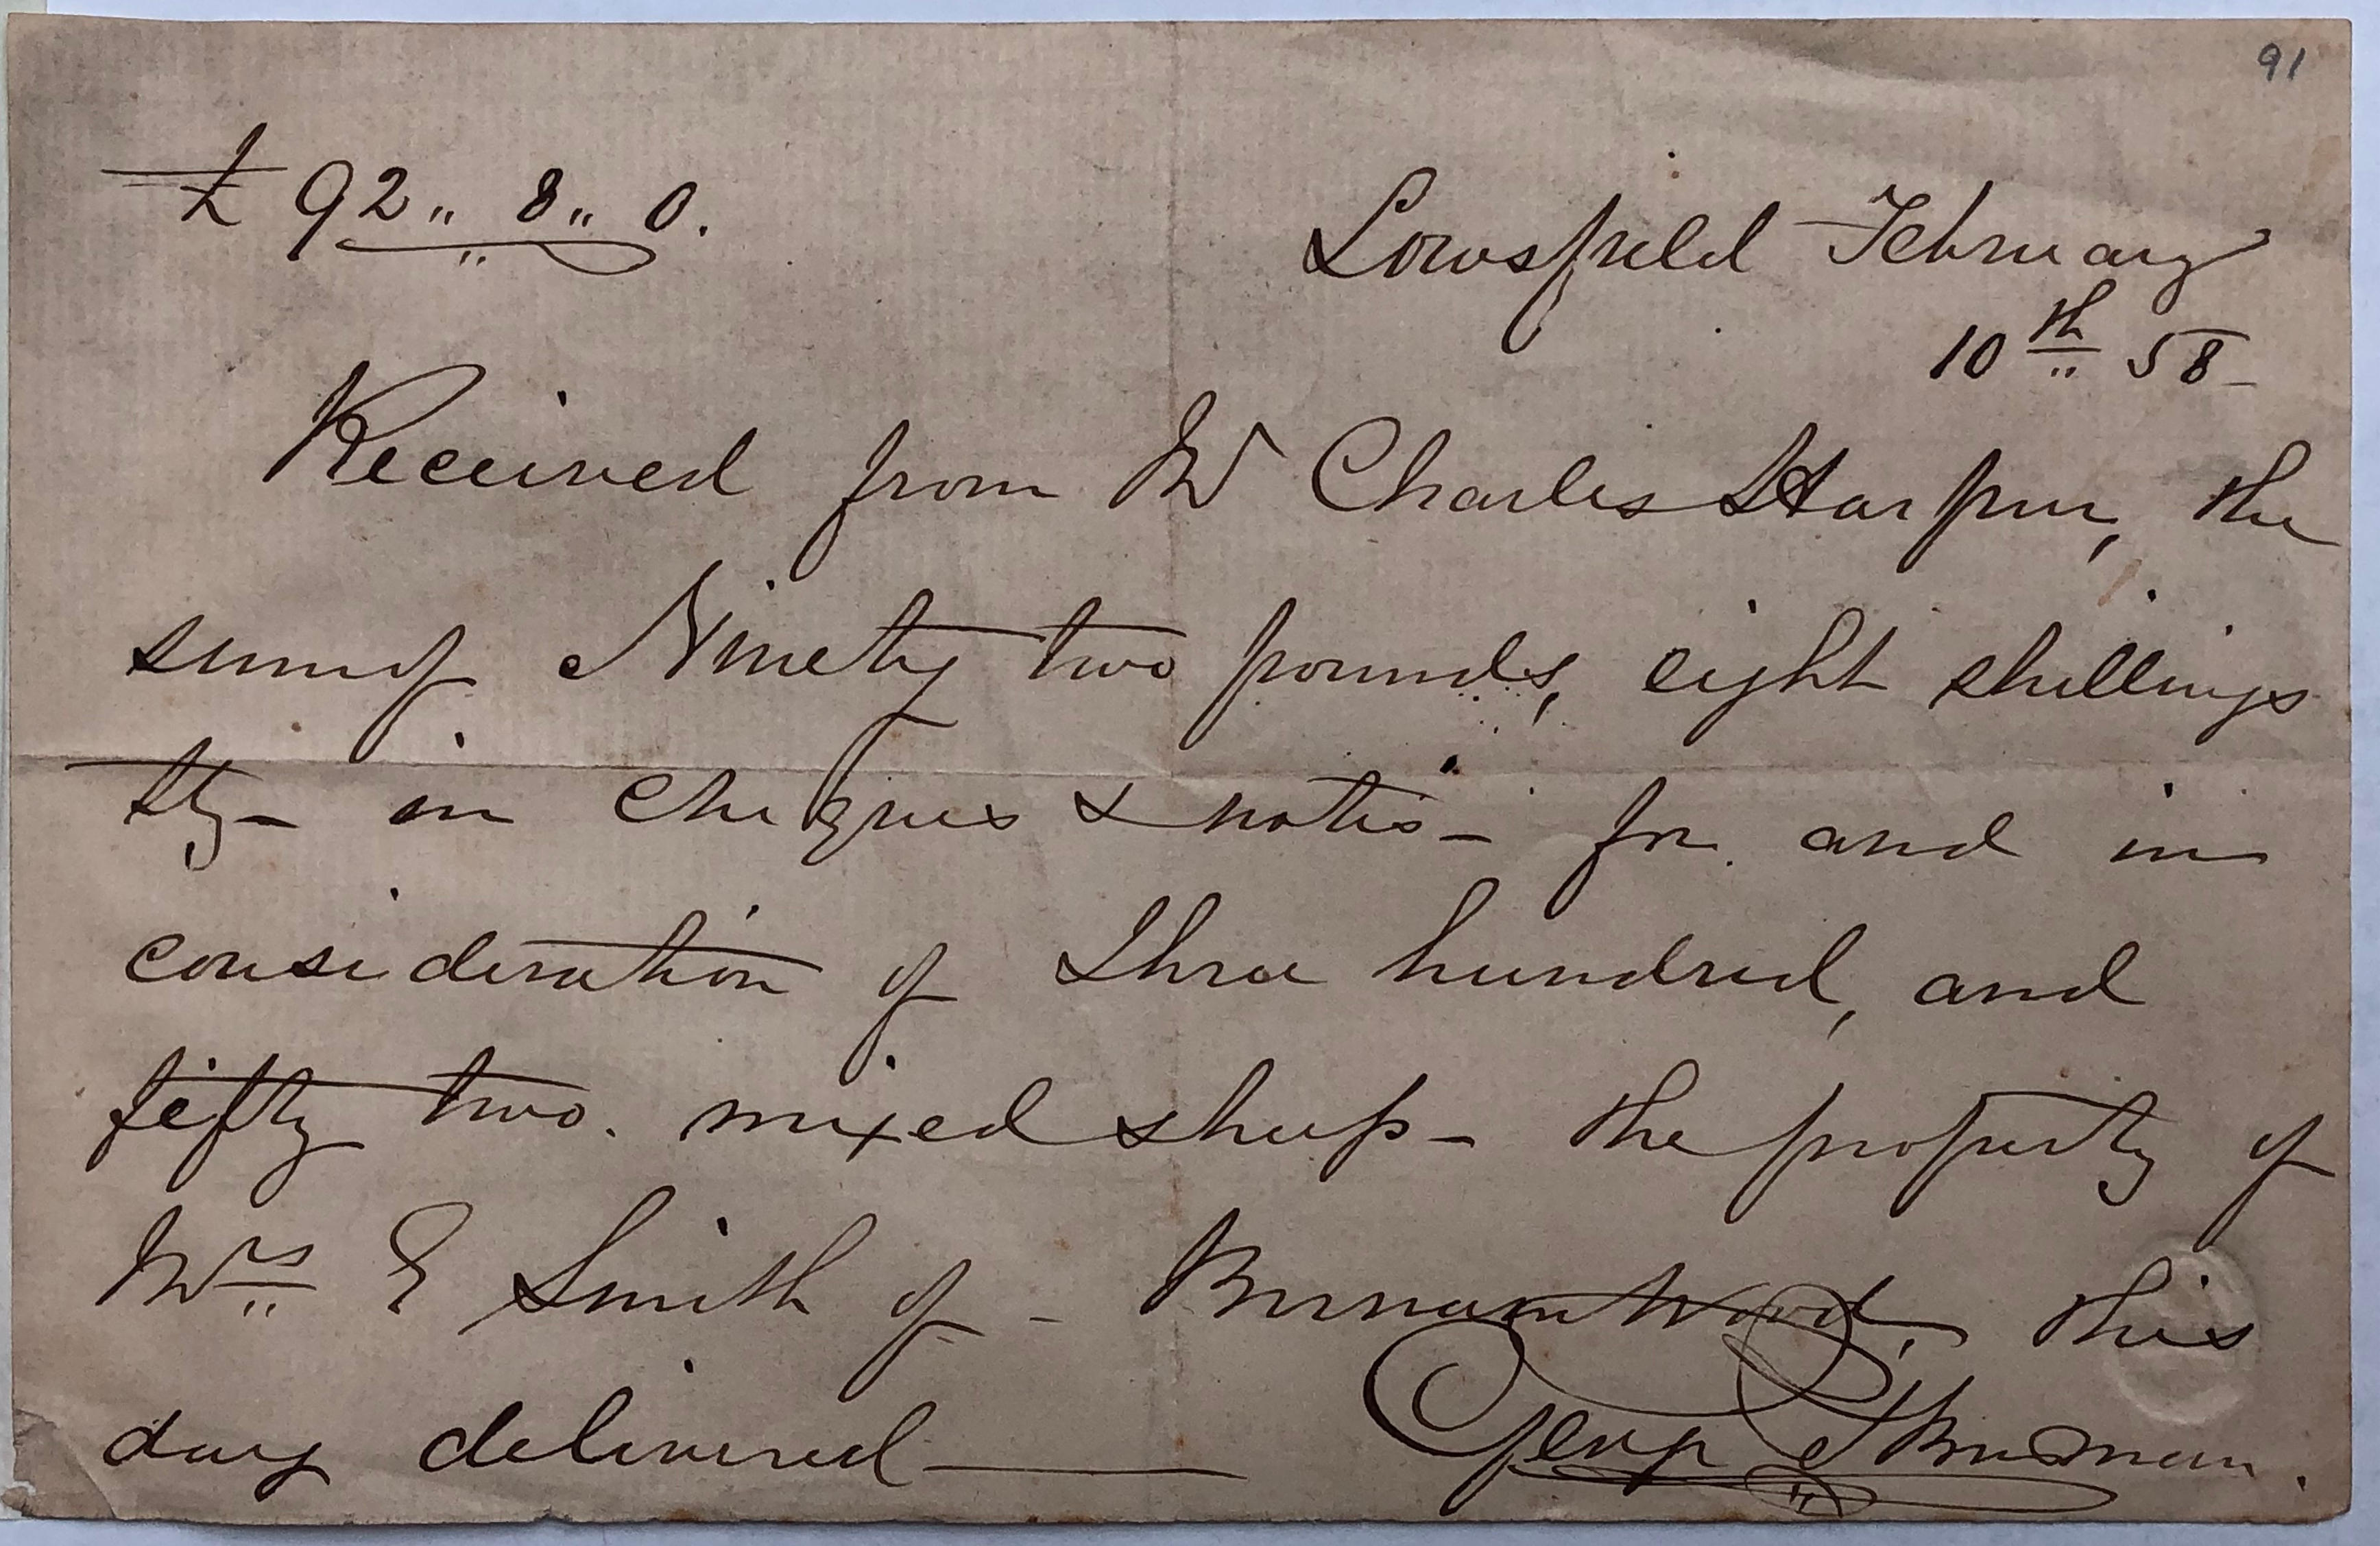 91
£ 92 " 8 " 0.
Lowsfield February
10th 58
Received from Mr Charles Harpur, the
sum of Ninety two pounds, eight shillings
stg - in cheques & notes - for and in
consideration of three hundred, and
fifty two. mixed sheep - the property of
Mrs E Smith of - Burnam Wood, this
day delivered —
George